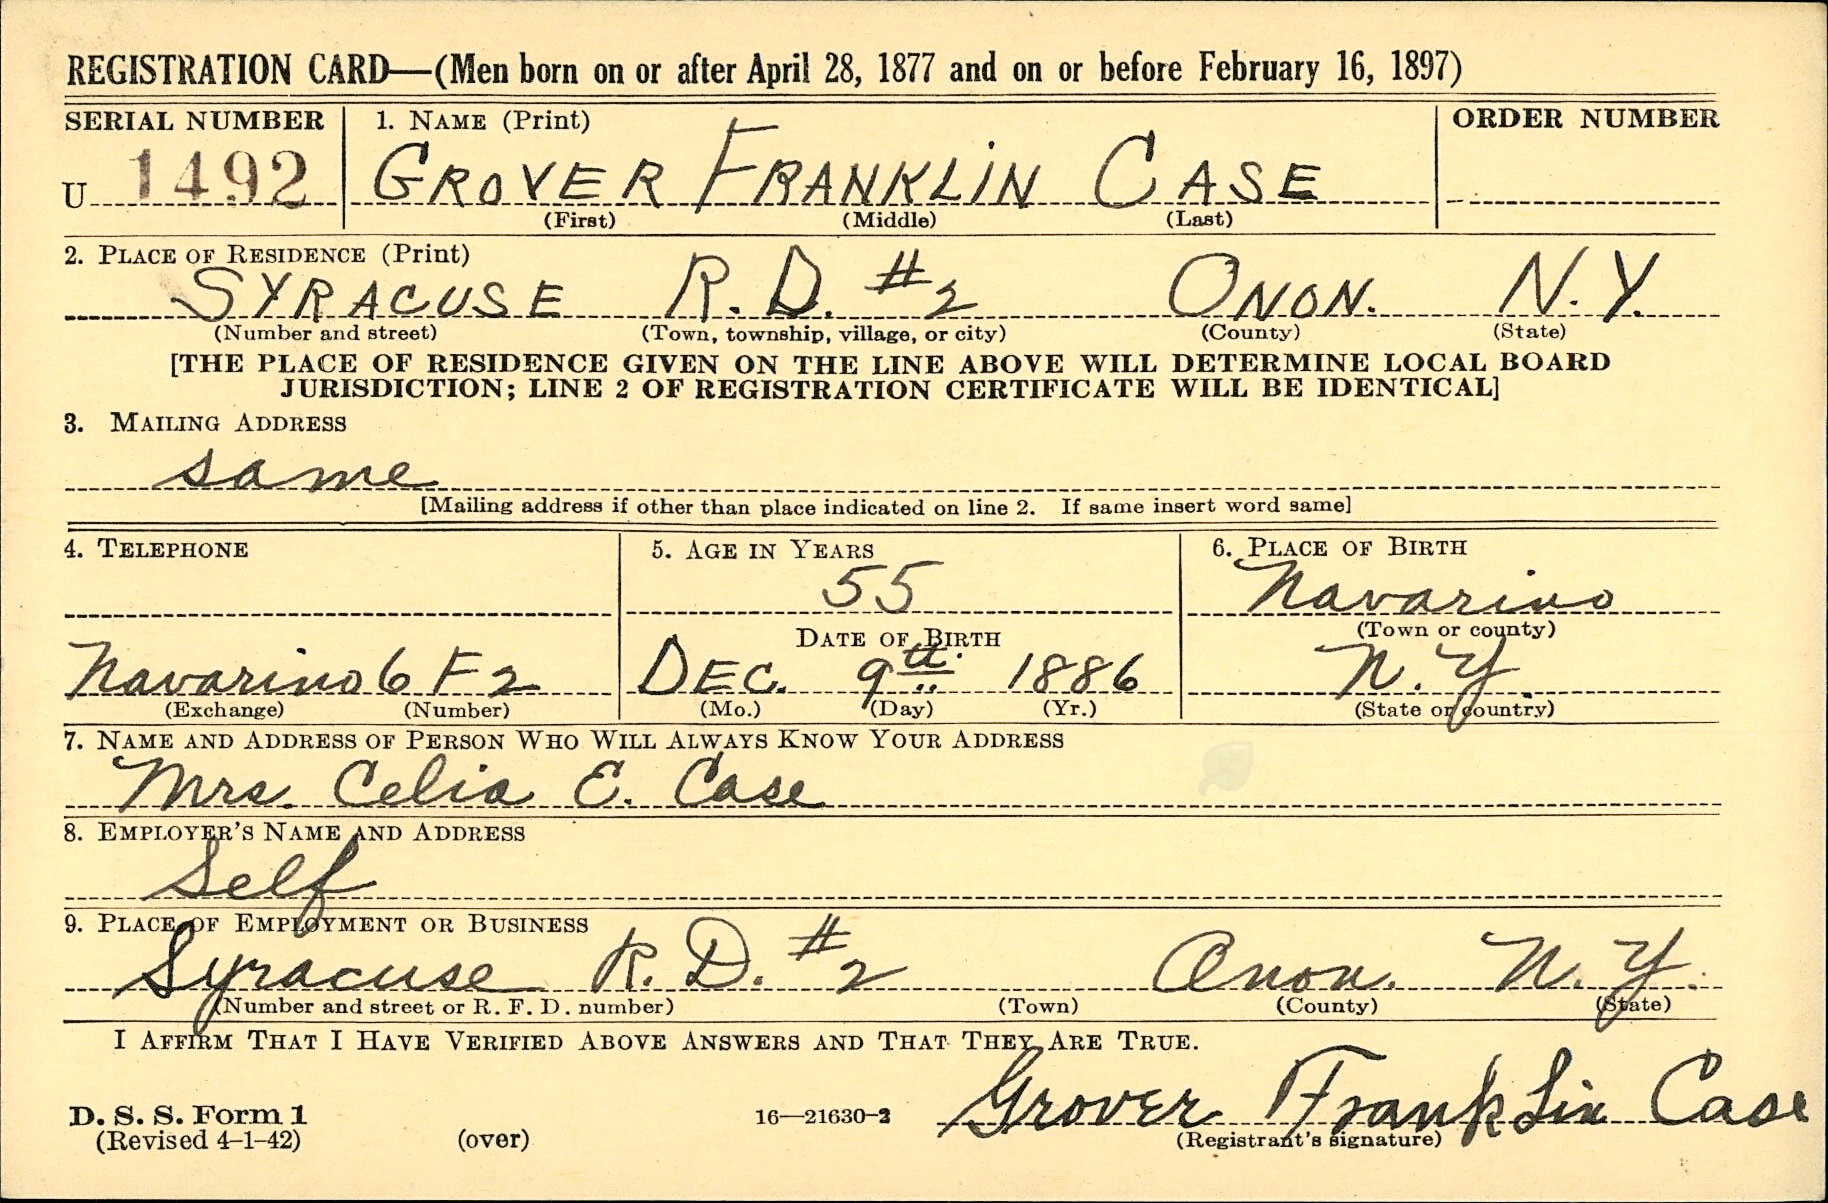 REGISTRATION CARD—(Men born on or after April 28, 1877 and on or before February 16, 1897)
SERIAL NUMBER 1. NAME (Print) ORDER NUMBER
U 1492 GROVER FRANKLIN CASE
(First) (Middle) (Last)
2. PLACE OF RESIDENCE (Print)
SYRACUSE R. D. #2 ONON. N. Y.
(Number and street) (Town, township, village, or city) (County) (State)
[THE PLACE OF RESIDENCE GIVEN ON THE LINE ABOVE WILL DETERMINE LOCAL BOARD
JURISDICTION; LINE 2 OF REGISTRATION CERTIFICATE WILL BE IDENTICAL]
3. MAILING ADDRESS
same
[Mailing address if other than place indicated on line 2. If same insert word same]
4. TELEPHONE 5. AGE IN YEARS 6. PLACE OF BIRTH
55 Navarino
DATE OF BIRTH (Town or county)
Navarino 6 F 2 DEC. 9th 1886 N. Y.
(Exchange) (Number) (Mo.) (Day) (Yr.) (State or country)
7. NAME AND ADDRESS OF PERSON WHO WILL ALWAYS KNOW YOUR ADDRESS
Mrs. Celia E. Case
8. EMPLOYER'S NAME AND ADDRESS
Self
9. PLACE OF EMPLOYMENT OR BUSINESS
Syracuse R. D. #2 Onon. N. Y.
(Number and street or R. F. D. number) (Town) (County) (State)
I AFFIRM THAT I HAVE VERIFIED ABOVE ANSWERS AND THAT THEY ARE TRUE.
D. S. S. Form 1 16—21630-2 Grover Franklin Case
(Revised 4-1-42) (over) (Registrant's signature)